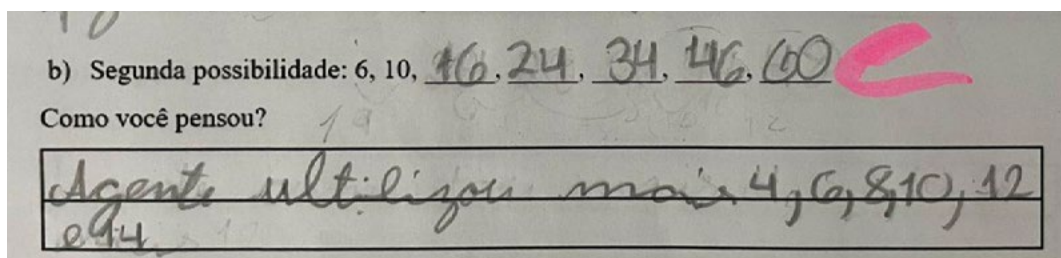 b) Segunda possibilidade: 6, 10, 16, 24, 34, 46, 60
Como você pensou?
Agente ultilizou mais 4, 6, 8, 10, 12
e 14